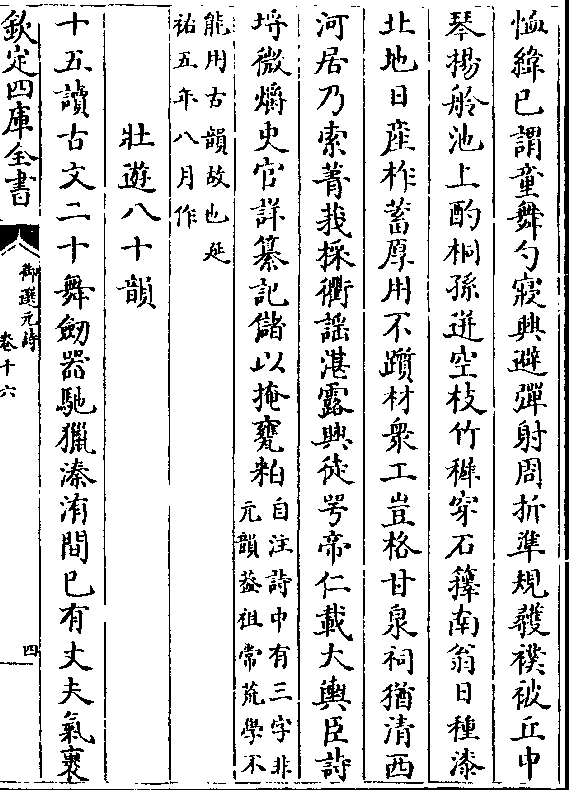 恤緯已謂童舞勺寢興避彈射周折準規彠襆被丘中
琴揚舲池上酌桐孫迸空枝竹穉穿石籜南翁日種漆
北地日產柞蓄厚用不躓材衆工豈格甘泉祠猶清西
河居乃索菁莪採衢謡湛露興徒咢帝仁載大輿臣詩
埒微爝史官詳纂記儲以掩甕粕自注詩中有三字非
元韻葢祖常荒學不
能用古韻故也延
祐五年八月作
壯遊八十韻
十五讀古文二十舞劒器馳獵溱洧間已有丈夫氣裹
欽定四庫全書
御選元詩
卷十六
四